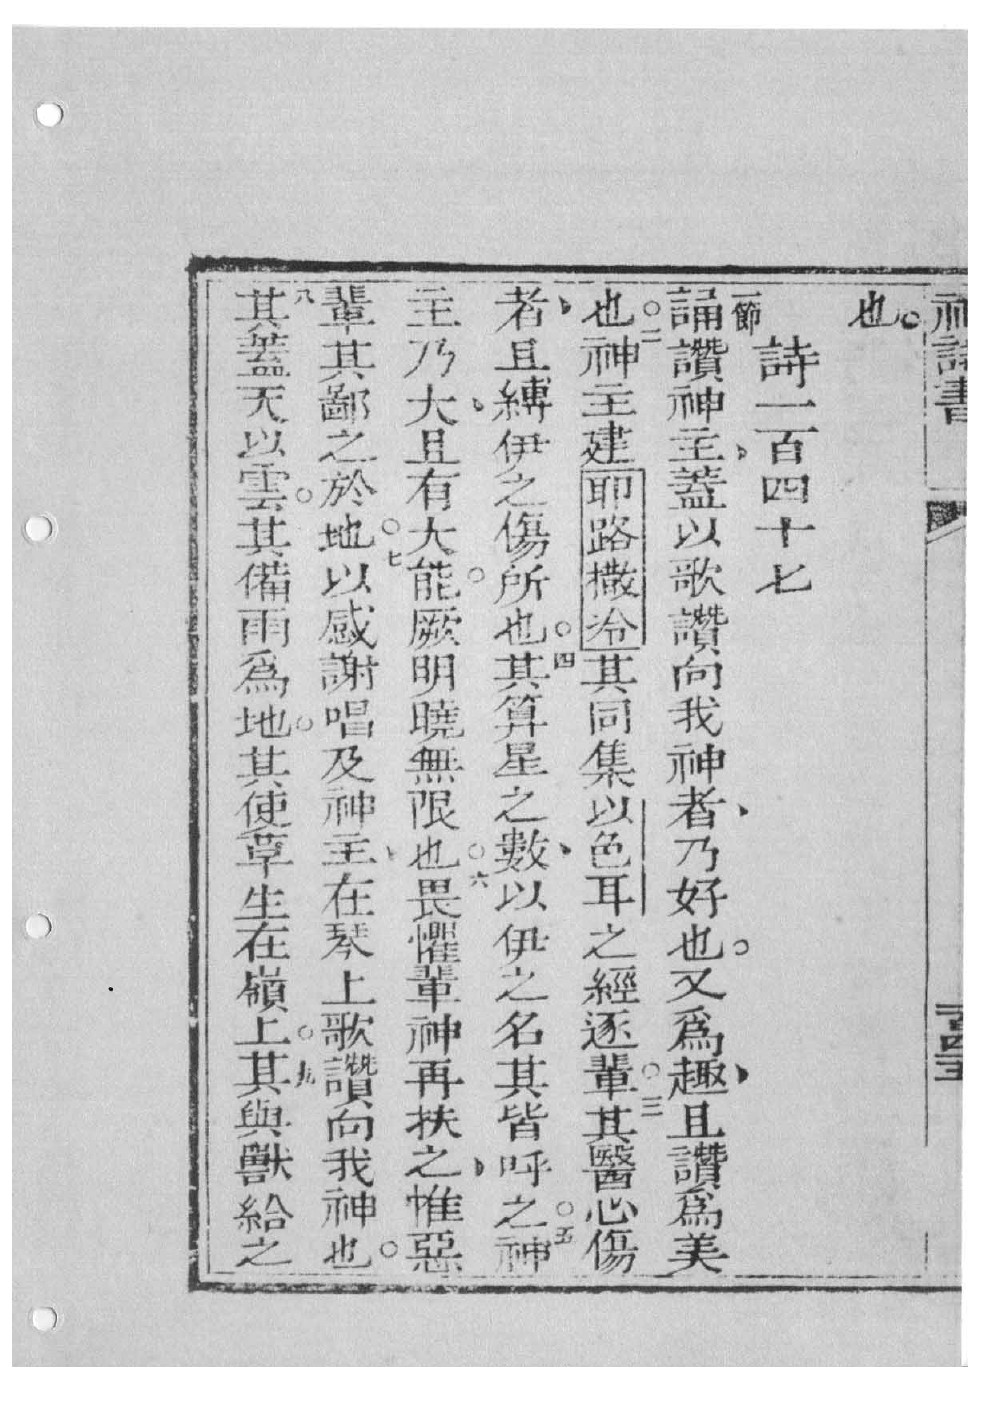 神詩書
也。
詩一百四十七
一節誦讚神主、蓋以歌讚向我神者、乃好也。又爲趣、且讚爲美
也。二神主建耶路撒冷其同集以色耳之經逐輩。三其醫心傷
者、且縛伊之傷所也。四其算星之數、以伊之名其皆呼之。五神
主乃大、且有大能。厥明曉無限也。六畏懼輩神再扶之、惟惡
輩其鄙之於地。七以感謝唱及神主、在琴上歌讚向我神也。
八其蓋天以雲。其備雨爲地。其使草生在嶺上。九其與獸給之